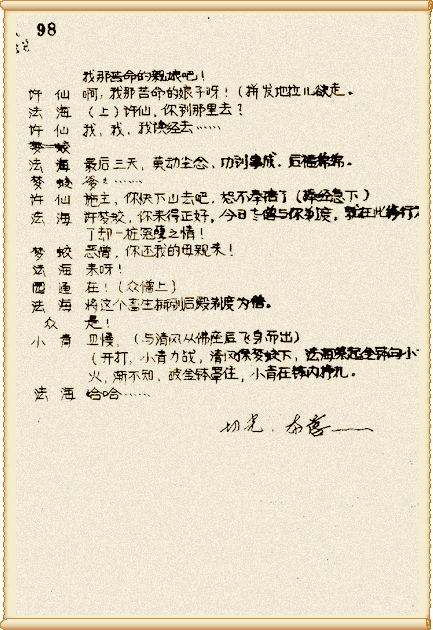 98
我那苦命的亲娘呀！
许仙 啊，我那苦命的娘子呀！（拼发地拉儿欲走。
法海 （上）许仙，你到那里去？
许仙 我，我，我读经去……
梦蛟
法海 最后三天，莫动尘念，功到事成，后福绵绵。
梦蛟 爹！……
许仙 施主，你快下山去吧，恕不奉陪了（急下）
法海 许梦蛟，你来得正好，今日老僧与你剃度，就在此修行，
了却一桩冤孽之情！
梦蛟 恶僧，你还我的母亲来！
法海 来呀！
圆通 在！（众僧上）
法海 将这个畜生绑到后殿剃度为僧。
众 是！
小青 且慢，（与清风从佛座后飞身而出）
（开打，小青力战，清风保梦蛟下，法海祭起金钵向小
火，渐不知，被金钵罩住，小青在钵内挣扎。
法海 哈哈……
切光．